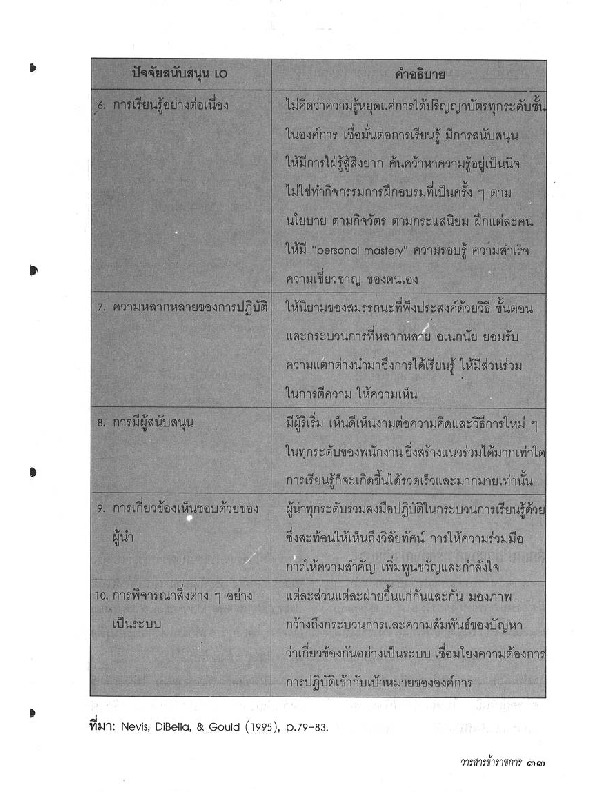 ปัจจัยสนับสนุน LO
คำอธิบาย
6. การเรียนรู้อย่างต่อเนื่อง
ไม่คิดว่าความรู้หยุดแค่การได้ปริญญาบัตรทุกระดับชั้น
ในองค์การ เชื่อมั่นต่อการเรียนรู้ มีการสนับสนุน
ให้มีการใฝ่รู้สู้สิ่งยาก ค้นคว้าหาความรู้อยู่เป็นนิจ
ไม่ใช่ทำกิจกรรมการฝึกอบรมที่เป็นครั้ง ๆ ตาม
นโยบาย ตามกิจวัตร ตามกระแสนิยม ฝึกแต่ละคน
ให้มี "personal mastery" ความรอบรู้ ความสำเร็จ
ความเชี่ยวชาญ ของตนเอง
7. ความหลากหลายของการปฏิบัติ
ให้นิยามของสมรรถนะที่พึงประสงค์ด้วยวิธี ขั้นตอน
และกระบวนการที่หลากหลาย อเนกนัย ยอมรับ
ความแตกต่างนำมาซึ่งการได้เรียนรู้ ให้มีส่วนร่วม
ในการตีความ ให้ความเห็น
8. การมีผู้สนับสนุน
มีผู้ริเริ่ม เห็นดีเห็นงามต่อความคิดและวิธีการใหม่ ๆ
ในทุกระดับของพนักงาน ยิ่งสร้างแนวร่วมได้มากเท่าใด
การเรียนรู้ก็จะเกิดขึ้นได้รวดเร็วและมากมายเท่านั้น
9. การเกี่ยวข้องเห็นชอบด้วยของ
ผู้นำ
ผู้นำทุกระดับร่วมลงมือปฏิบัติในกระบวนการเรียนรู้ด้วย
ซึ่งสะท้อนให้เห็นถึงวิสัยทัศน์ การให้ความร่วมมือ
การให้ความสำคัญ เพิ่มพูนขวัญและกำลังใจ
10. การพิจารณาสิ่งต่าง ๆ อย่าง
เป็นระบบ
แต่ละส่วนแต่ละฝ่ายขึ้นแก่กันและกัน มองภาพ
กว้างถึงกระบวนการและความสัมพันธ์ของปัญหา
ว่าเกี่ยวข้องกันอย่างเป็นระบบ เชื่อมโยงความต้องการ
การปฏิบัติเข้ากับเป้าหมายขององค์การ
ที่มา: Nevis, DiBella, & Gould (1995), p.79-83.
วารสารข้าราชการ ๓๓